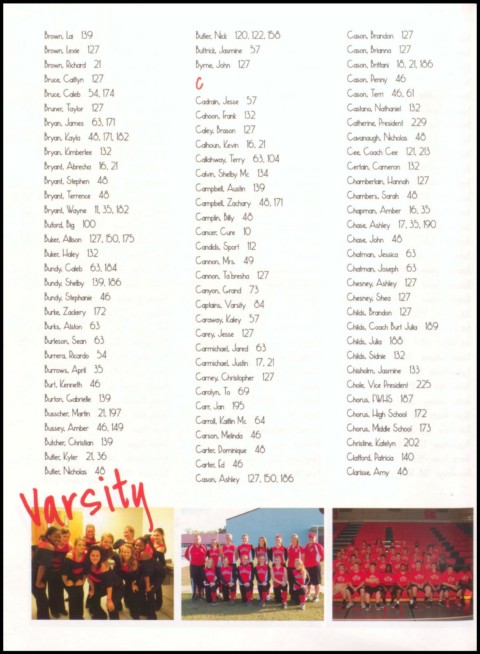 Brown, Lai 139
Brown, Lexie 127
Brown, Richard 21
Bruce, Caitlyn 127
Bruce, Caleb 54, 174
Bruner, Taylor 127
Bryan, James 63, 171
Bryan, Kayla 48, 171, 182
Bryan, Kimberlee 132
Bryant, Abrecha 16, 21
Bryant, Stephen 48
Bryant, Terrence 48
Bryant, Wayne 11, 35, 182
Buford, Big 100
Buker, Allison 127, 150, 175
Buker, Haley 132
Bundy, Caleb 63, 184
Bundy, Shelby 139, 186
Bundy, Stephanie 46
Burke, Zackery 172
Burks, Alston 63
Burleson, Sean 63
Burnera, Ricardo 54
Burrows, April 35
Burt, Kenneth 46
Burton, Gabrielle 139
Busscher, Martin 21, 197
Bussey, Amber 46, 149
Butcher, Christian 139
Butler, Kyler 21, 36
Butler, Nicholas 48
Butler, Nick 120, 122, 158
Buttrick, Jasmine 57
Byrne, John 127
C
Cadrain, Jesse 57
Cahoon, Frank 132
Caley, Brason 127
Calhoun, Kevin 16, 21
Callahway, Terry 63, 104
Calvin, Shelby Mc 134
Campbell, Austin 139
Campbell, Zachary 48, 171
Camplin, Billy 48
Cancer, Cure 10
Candids, Sport 112
Cannon, Mrs. 49
Cannon, Ta'bresha 127
Canyon, Grand 73
Captains, Varsity 84
Caraway, Kaley 57
Carey, Jesse 127
Carmichael, Jared 63
Carmichael, Justin 17, 21
Carney, Christopher 127
Carolyn, To 69
Carr, Jan 195
Carroll, Kaitlin Mc 64
Carson, Melinda 46
Carter, Dominique 48
Carter, Ed 46
Cason, Ashley 127, 150, 186
Cason, Brandon 127
Cason, Brianna 127
Cason, Brittani 18, 21, 186
Cason, Penny 46
Cason, Terri 46, 61
Castano, Nathaniel 132
Catherine, President 229
Cavanaugh, Nicholas 48
Cee, Coach Cee 121, 213
Certain, Cameron 132
Chamberlain, Hannah 127
Chambers, Sarah 48
Chapman, Amber 16, 35
Chase, Ashley 17, 35, 190
Chase, John 48
Chatman, Jessica 63
Chatman, Joseph 63
Chesney, Ashley 127
Chesney, Shea 127
Childs, Brandon 127
Childs, Coach Burt Julia 189
Childs, Julia 188
Childs, Sidnie 132
Chisholm, Jasmine 133
Chole, Vice President 225
Chorus, FWHS 187
Chorus, High School 172
Chorus, Middle School 173
Christine, Katelyn 202
Clafford, Patricia 140
Clarisse, Amy 48
Varsity